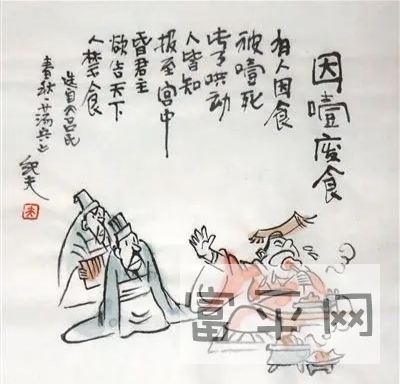 因噎废食
有人因食
被噎死
此事哄动
人皆知
报至宫中
昏君主
欲告天下
人禁食
选自《吕氏
春秋·荡兵》
纪夫
夫
富平网